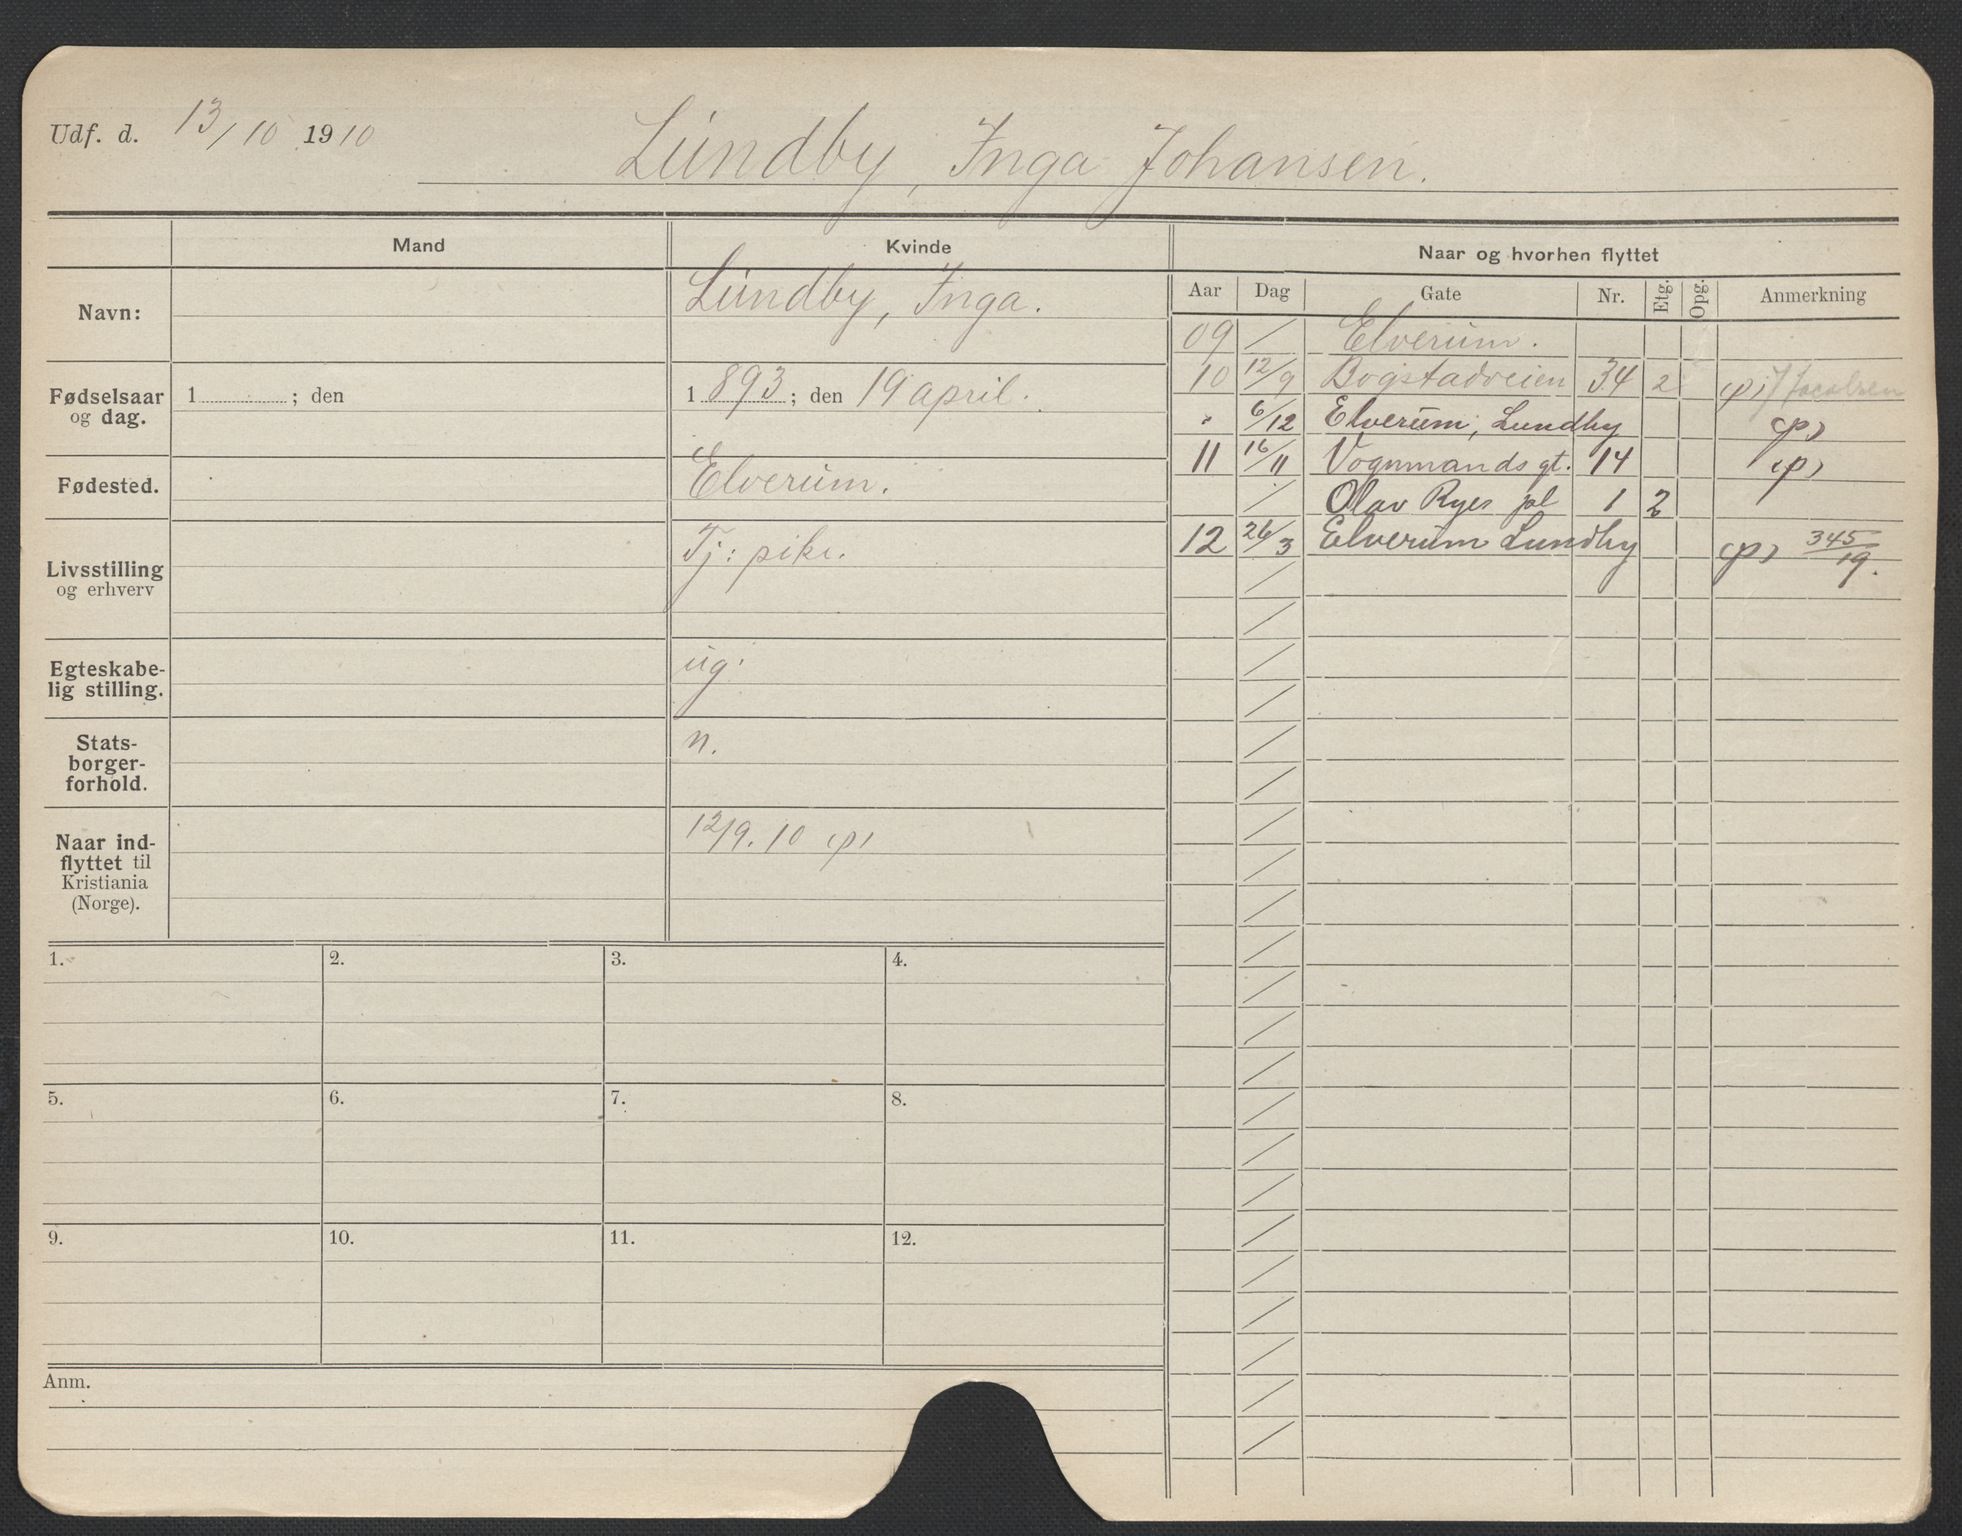 Udf. d. 13/10 1910
Lundby, Inga Johansen.
Mand Kvinde Naar og hvorhen flyttet
Aar Dag Gate Nr. Etg. Opg. Anmerkning
Navn: Lundby, Inga.
Fødselsaar og dag. 1 ; den 1893; den 19 april.
Fødested. Elverum.
Livsstilling og erhverv Tj: pike.
Egteskabe-
lig stilling. ug:
Stats-
borger-
forhold. n.
Naar ind-
flyttet til
Kristiania
(Norge). 12/9. 10 (p)
09 / Elverum.
10 12/9 Bogstadveien 34 2 (p) J Jacobsen
" 6/12 Elverum, Lundby (p)
11 16/11 Vognmands gt. 14 (p)
/ Olav Ryes pl 1 2
12 26/3 Elverum Lundby (p) 345/19.
1. 2. 3. 4.
5. 6. 7. 8.
9. 10. 11. 12.
Anm.